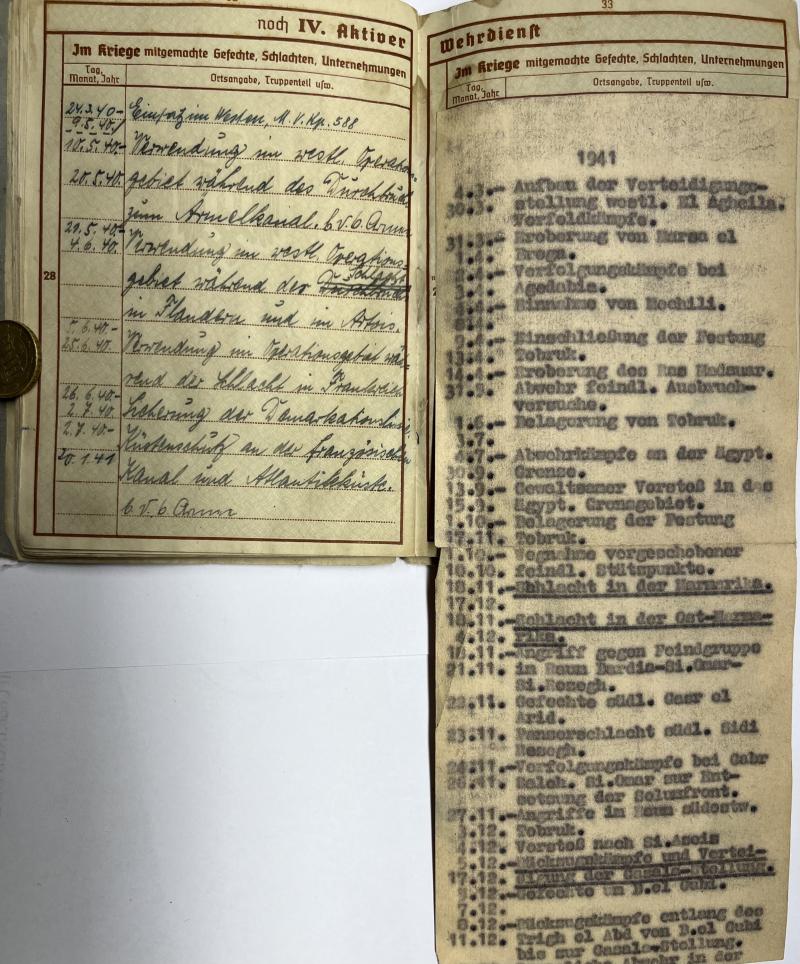 noch IV. Aktiver
Im Kriege mitgemachte Gefechte, Schlachten, Unternehmungen
Tag, Monat, Jahr
Ortsangabe, Truppenteil usw.
24.3.40- Einsatz im Westen, M.V.Kp. 588
9.5.40./
10.5.40- Verwendung im westl. Operation-
20.5.40. gebiet während des Durchbruchs
zum Armelkanal. b.v.b Armee
21.5.40- Verwendung im westl. Operations
4.6.40. gebiet während der Schlacht
in Flandern und im Artois.
5.6.40.- Verwendung im Operationsgebiet wäh-
25.6.40. rend der Schlacht in Frankreich
26.6.40- Sicherung der Demarkationslinie
2.7.40.
2.7.40- Küstenschutz an der französischen
20.1.41 Kanal und Atlantikküste.
b v. b Armee
28
33
Wehrdienst
Im Kriege mitgemachte Gefechte, Schlachten, Unternehmungen
Tag, Monat, Jahr
Ortsangabe, Truppenteil usw.
1941
4.3.- Aufbau der Verteidigungs-
30.3. stellung westl. El Agheila.
Vorfeldkämpfe.
31.3.- Eroberung von Marsa el
1.4. Brega.
2.4.- Verfolgungskämpfe bei
Agedabia.
Einnahme von Mechili.
9.4.- Einschließung der Festung
13.4. Tobruk.
14.4.- Eroberung des Ras Madauar.
31.5. Abwehr feindl. Ausbruch-
versuche.
1.6.- Belagerung von Tobruk.
3.7.
4.7.- Abwehrkämpfe an der Ägypt.
30.9. Grenze.
13.9.- Gewaltsamer Vorstoß in das
15.9. Ägypt. Grenzgebiet.
1.10.- Belagerung der Festung
17.11. Tobruk.
1.10.- Wegnahme vorgeschobener
10.10. feindl. Stützpunkte.
18.11.- Schlacht in der Marmarika.
17.12.
18.11.- Schlacht in der Ost-Marma-
4.12. rika.
18.11.- Angriff gegen Feindgruppe
21.11. in Raum Bardia-Si.Omar-
Si.Rezegh.
22.11. Gefechte südl. Gasr el
Arid.
23.11. Panzerschlacht südl. Sidi
Rezegh.
24.11.- Verfolgungskämpfe bei Gabr
26.11. Saleh. Si.Omar zur Ent-
setzung der Solumfront.
27.11.- Angriffe im Raum südostw.
3.12. Tobruk.
4.12. Vorstoß nach Si.Aseis
5.12.- Rückzugskämpfe und Vertei-
17.12. digung der Gasala-Stellung.
5.12.- Gefechte um B.el Gubi.
7.12.
8.12.- Rückzugskämpfe entlang des
11.12. Trigh el Abd von B.el Gubi
bis zur Gasala-Stellung.
Abwehr in der